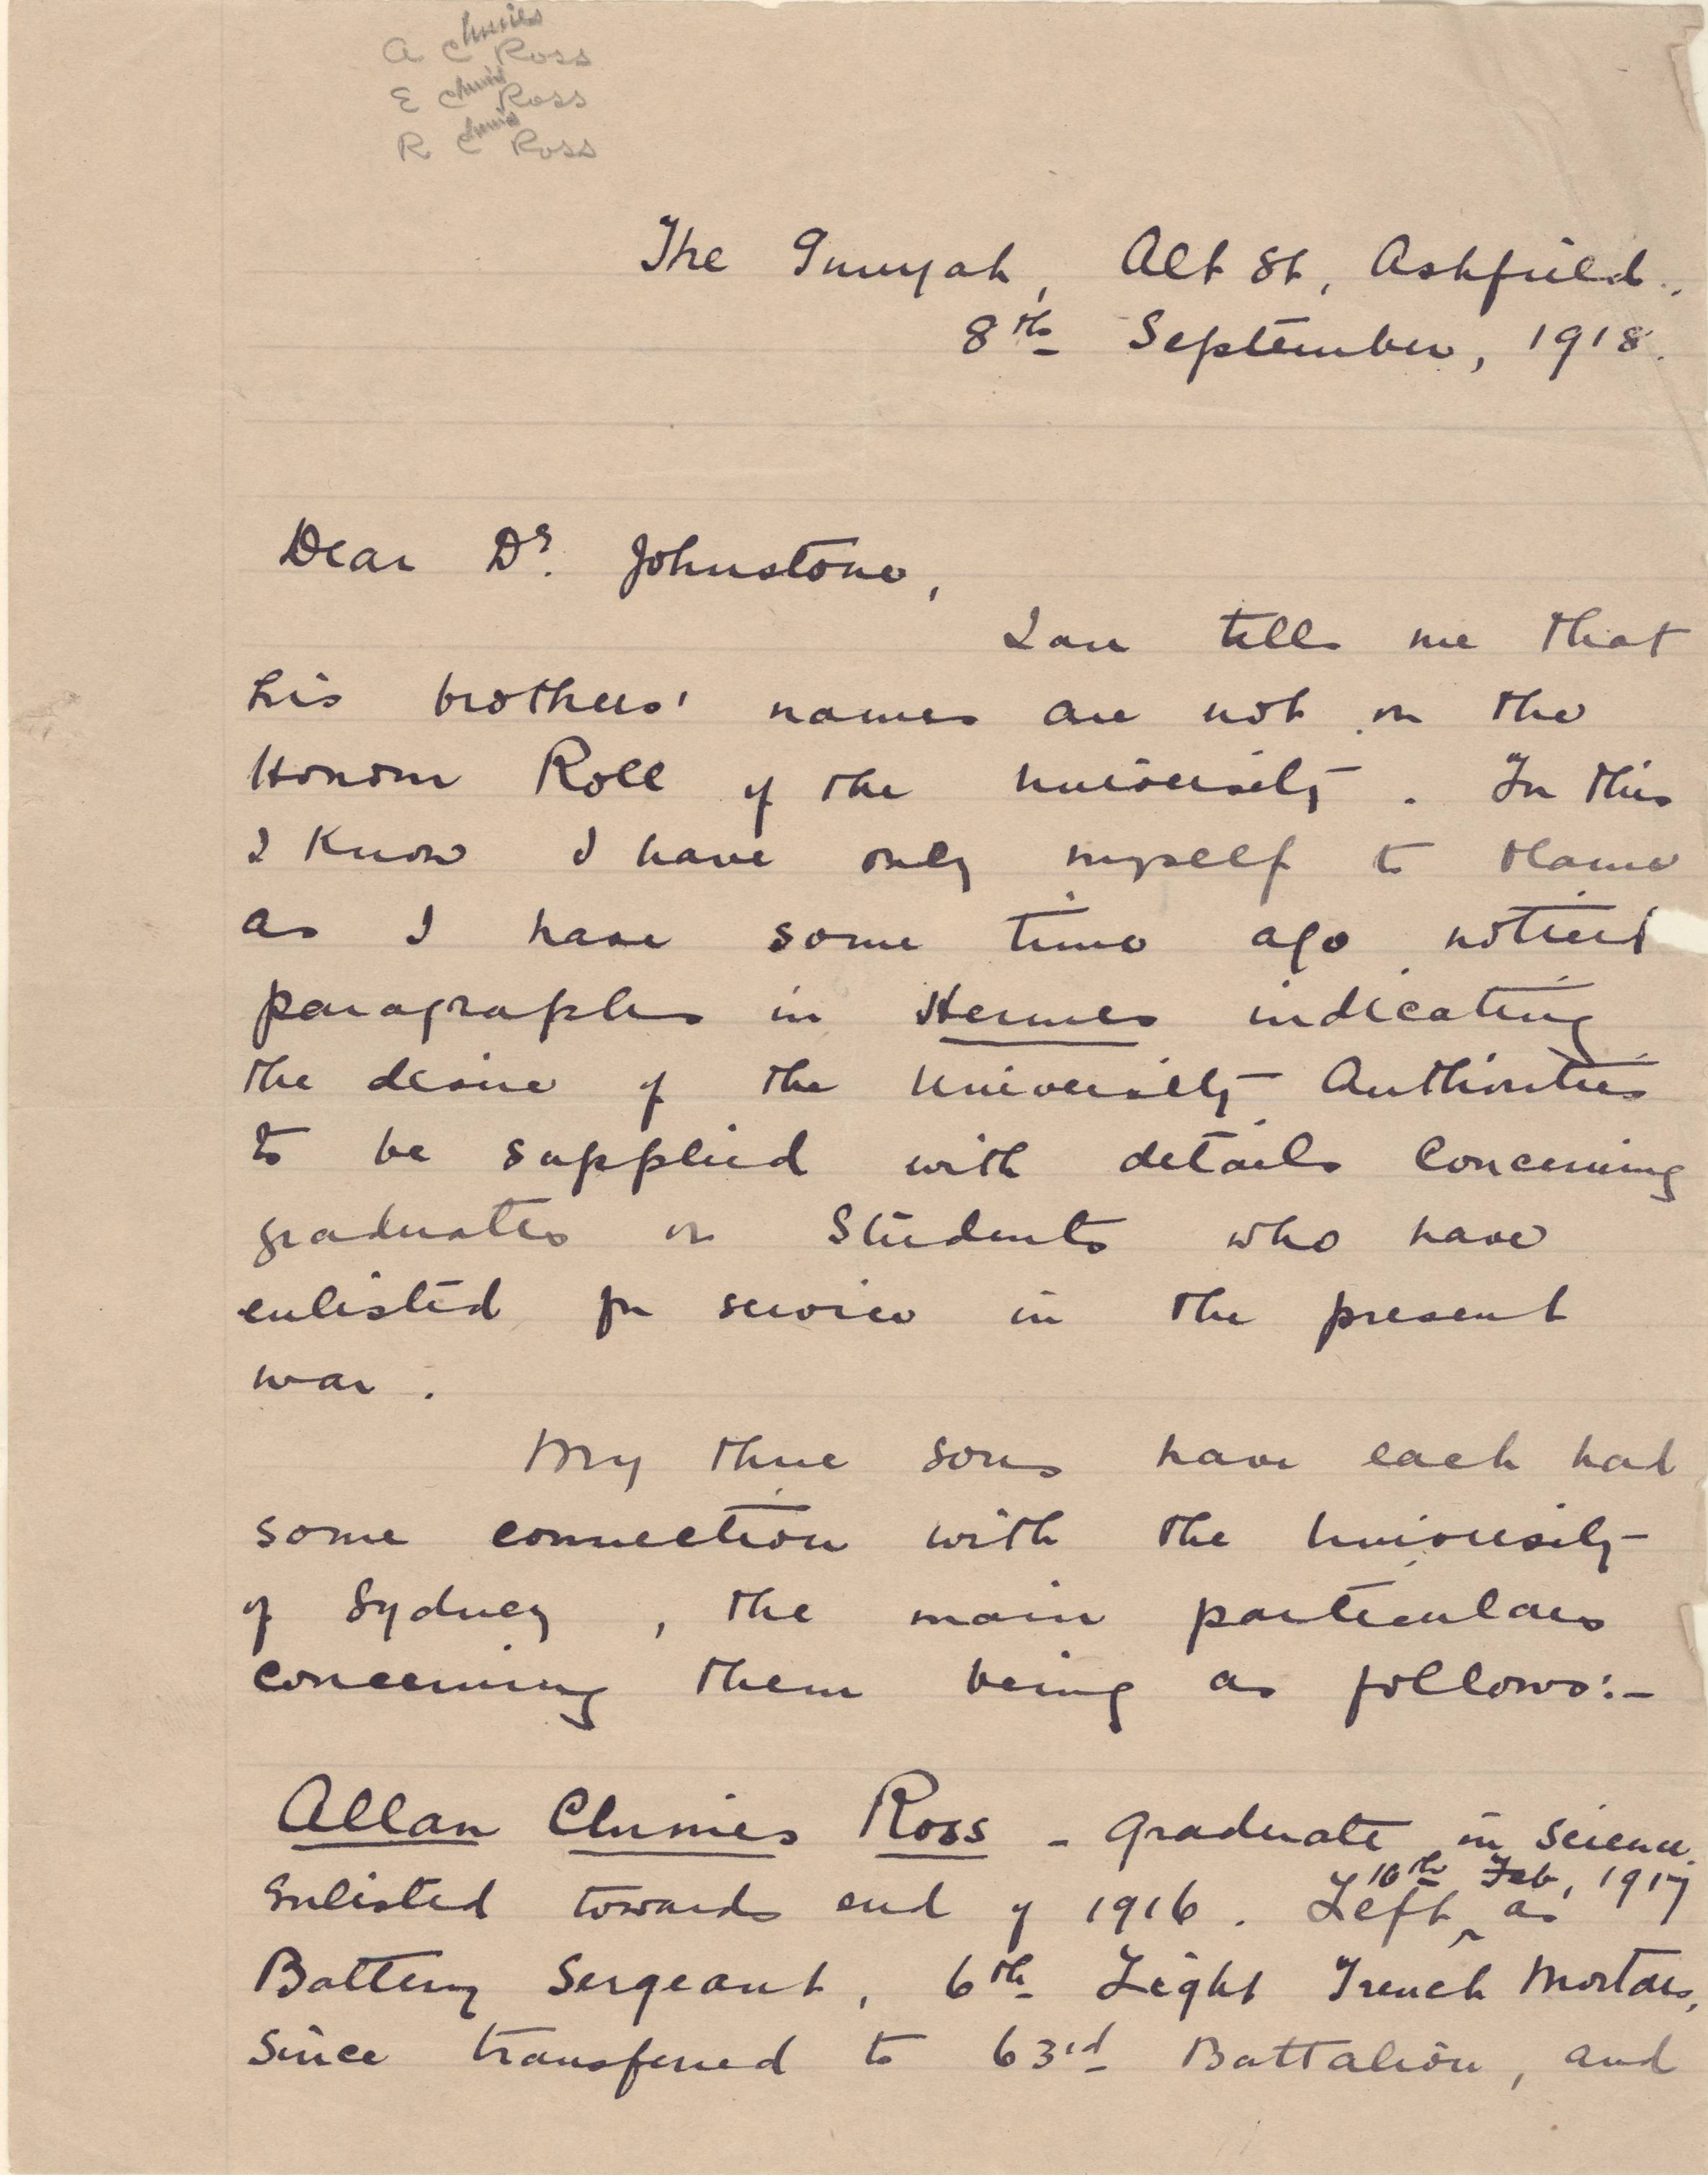 A Clunies Ross
E Clunies Ross
R Clunies Ross
The Gunyah, Alt St, Ashfield.
8th September, 1918.
Dear Dr. Johnstone,
Ian tells me that
his brothers' names are not on the
Honour Roll of the University. In this
I know I have only myself to blame
as I have some time ago noticed
paragraphs in Hermes indicating
the desire of the University Authorities
to be supplied with details concerning
graduates or Students who have
enlisted for service in the present
war.
My three sons have each had
some connection with the University
of Sydney, the main particulars
concerning them being as follows:-
Allan Clunies Ross - Graduate in Science.
Enlisted towards end of 1916. Left 10th Feb, 1917 as
Battery Sergeant, 6th Light Trench Mortars,
Since transferred to 63rd Battalion, and